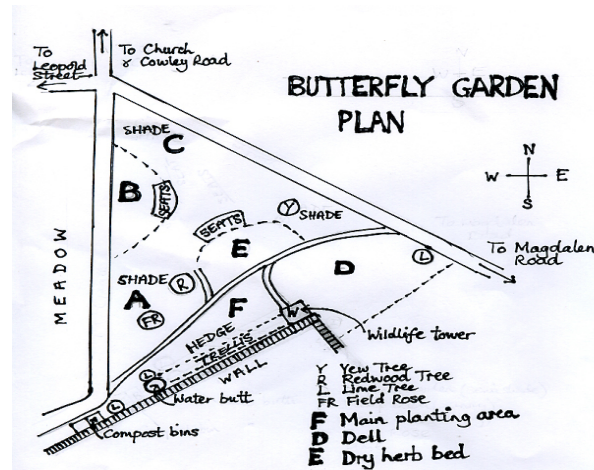 To
Leopold
Street
To Church
& Cowley Road
BUTTERFLY GARDEN
PLAN
SHADE
C
N
W E
S
B
SEATS
Y
SHADE
SEATS
E
MEADOW
D
L
To Magdalen
Road
SHADE
R
A
FR
F
W
HEDGE
TRELLIS
WALL
Wildlife tower
L
L
Water butt
Compost bins
Y Yew Tree
R Redwood Tree
L Lime Tree
FR Field Rose
F Main planting area
D Dell
E Dry herb bed